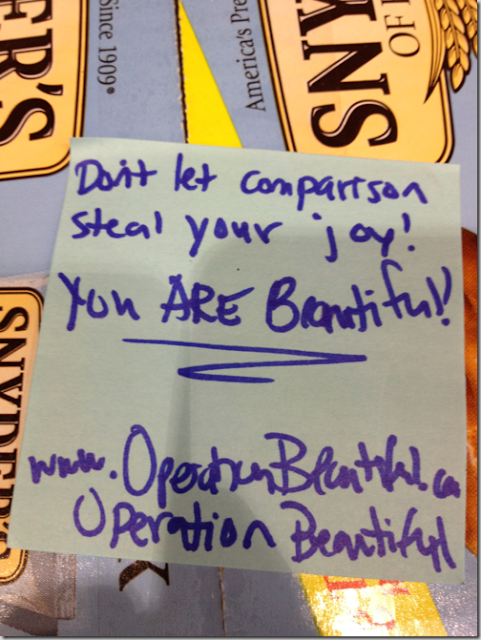 ER'S
Since 1909®
America's Pre
SNY
OF
Don't let comparison
steal your joy!
You ARE Beautiful!
www.OperationBeautiful.ca
Operation Beautiful
SNYDER'S